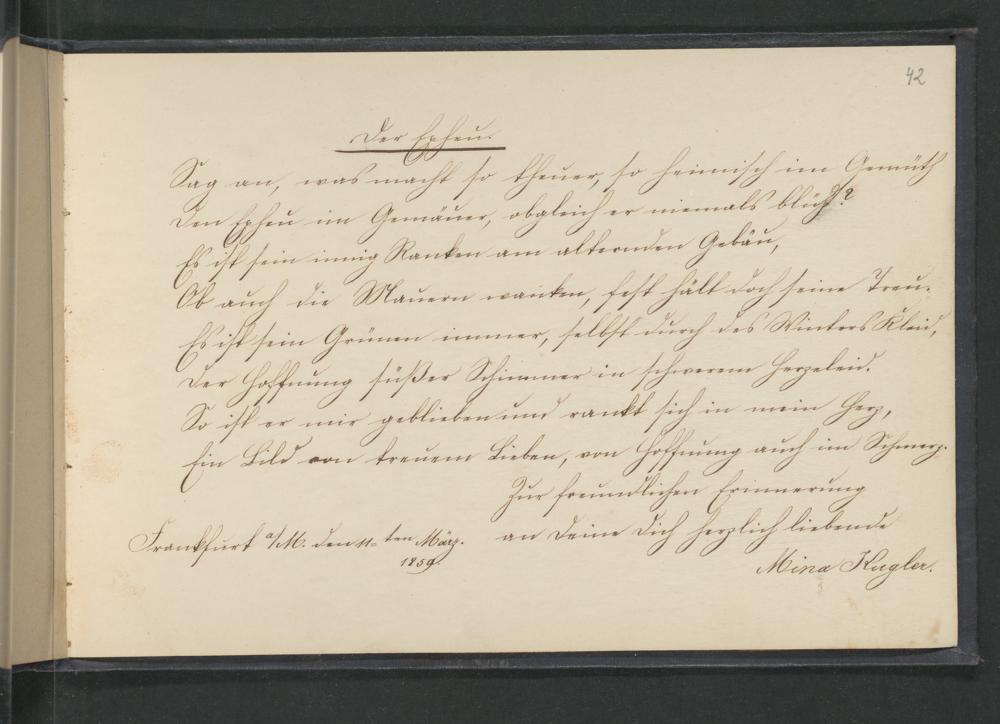 42
Der Epheu.
Sag an, was macht so theuer, so heimisch im Gemüth
Den Epheu im Gemäuer, obgleich er niemals blüht?
Es ist sein innig Ranken am alternden Gebäu,
Ob auch die Mauern wanken, fest hält doch seine Treu.
Es ist sein Grünen immer, selbst durch des Winters Kleid,
Der Hoffnung süßer Schimmer in schwerem Herzeleid.
So ist er mir geblieben und rankt sich in mein Herz,
Ein Bild von treuem Lieben, von Hoffnung auch im Schmerz.
Zur freundlichen Erinnerung
an Deine Dich herzlich liebende
Mina Kugler.
Frankfurt a/M. den 11ten März.
1859.